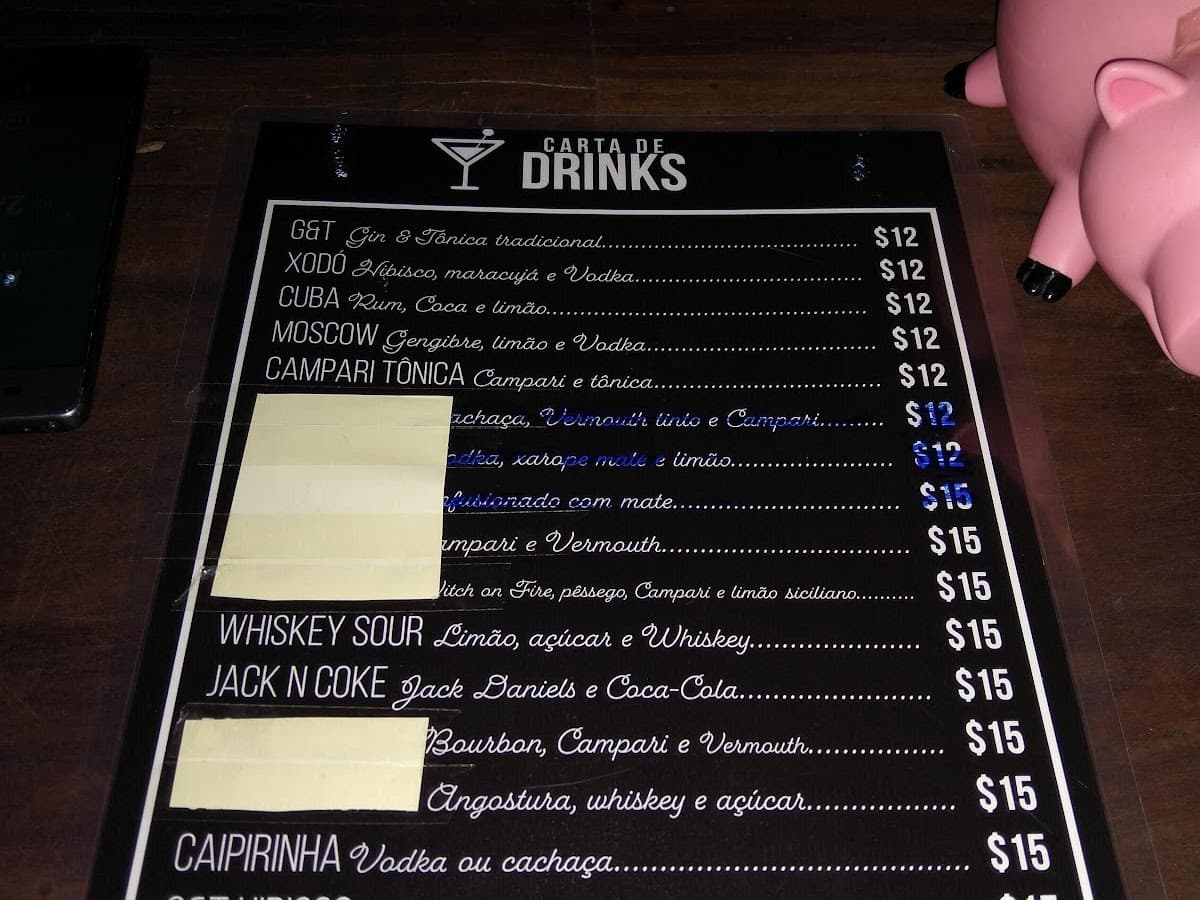 CARTA DE
DRINKS
G&T Gin & Tônica tradicional........ $12
XODÓ Hibisco, maracujá e Vodka........ $12
CUBA Rum, Coca e limão........ $12
MOSCOW Gengibre, limão e Vodka........ $12
CAMPARI TÔNICA Campari e tônica........ $12
achaça, Vermouth tinto e Campari........ $12
odka, xarope mate e limão........ $12
nfusionado com mate........ $15
ampari e Vermouth........ $15
itch on Fire, pêssego, Campari e limão siciliano........ $15
WHISKEY SOUR Limão, açúcar e Whiskey........ $15
JACK N COKE Jack Daniels e Coca-Cola........ $15
Bourbon, Campari e Vermouth........ $15
Angostura, whiskey e açúcar........ $15
CAIPIRINHA Vodka ou cachaça........ $15